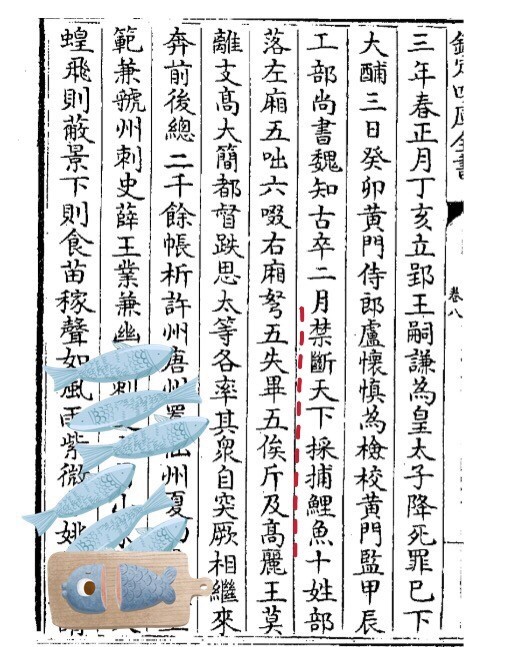 欽定四庫全書
卷八
三年春正月丁亥立郢王嗣謙為皇太子降死罪巳下
大酺三日癸卯黃門侍郎盧懷慎為檢校黃門監甲辰
工部尚書魏知古卒二月禁斷天下採捕鯉魚十姓部
落左廂五咄六啜右廂弩五失畢五俟斤及高麗王莫
離支高大簡都督趺思太等各率其衆自突厥相繼來
奔前後總二千餘帳析許州唐州置仙州夏
範兼虢州刺史薛王業兼幽刺
蝗飛則蔽景下則食苗稼聲如風雨紫微姚